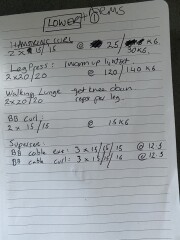 LOWER + ARMS
1
HAMSTRING CURL
2 x 15/15 @ 25/ KG.
30KG.
Leg Press: (warm up
2x20/20 @ 120/140 KG
Walking Lunge get knee down
2x20/20 reps per leg.
BB curl:
2 x 15/15 @ 15KG
Superset:
BB cable : 3 x 15/15/15 @ 12.5
BB cable curl: 3 x 15/15/15 @ 12.5